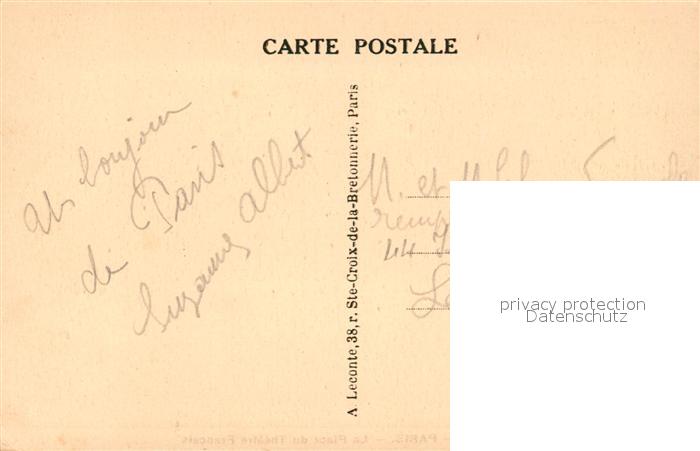 CARTE POSTALE
Un bonjour
de Paris
Suzanne Albert
A. Leconte, 38, r. Ste-Croix-de-la-Bretonnerie, Paris
M. et
44
privacy protection
Datenschutz
PARIS. — La Place du Théâtre Français